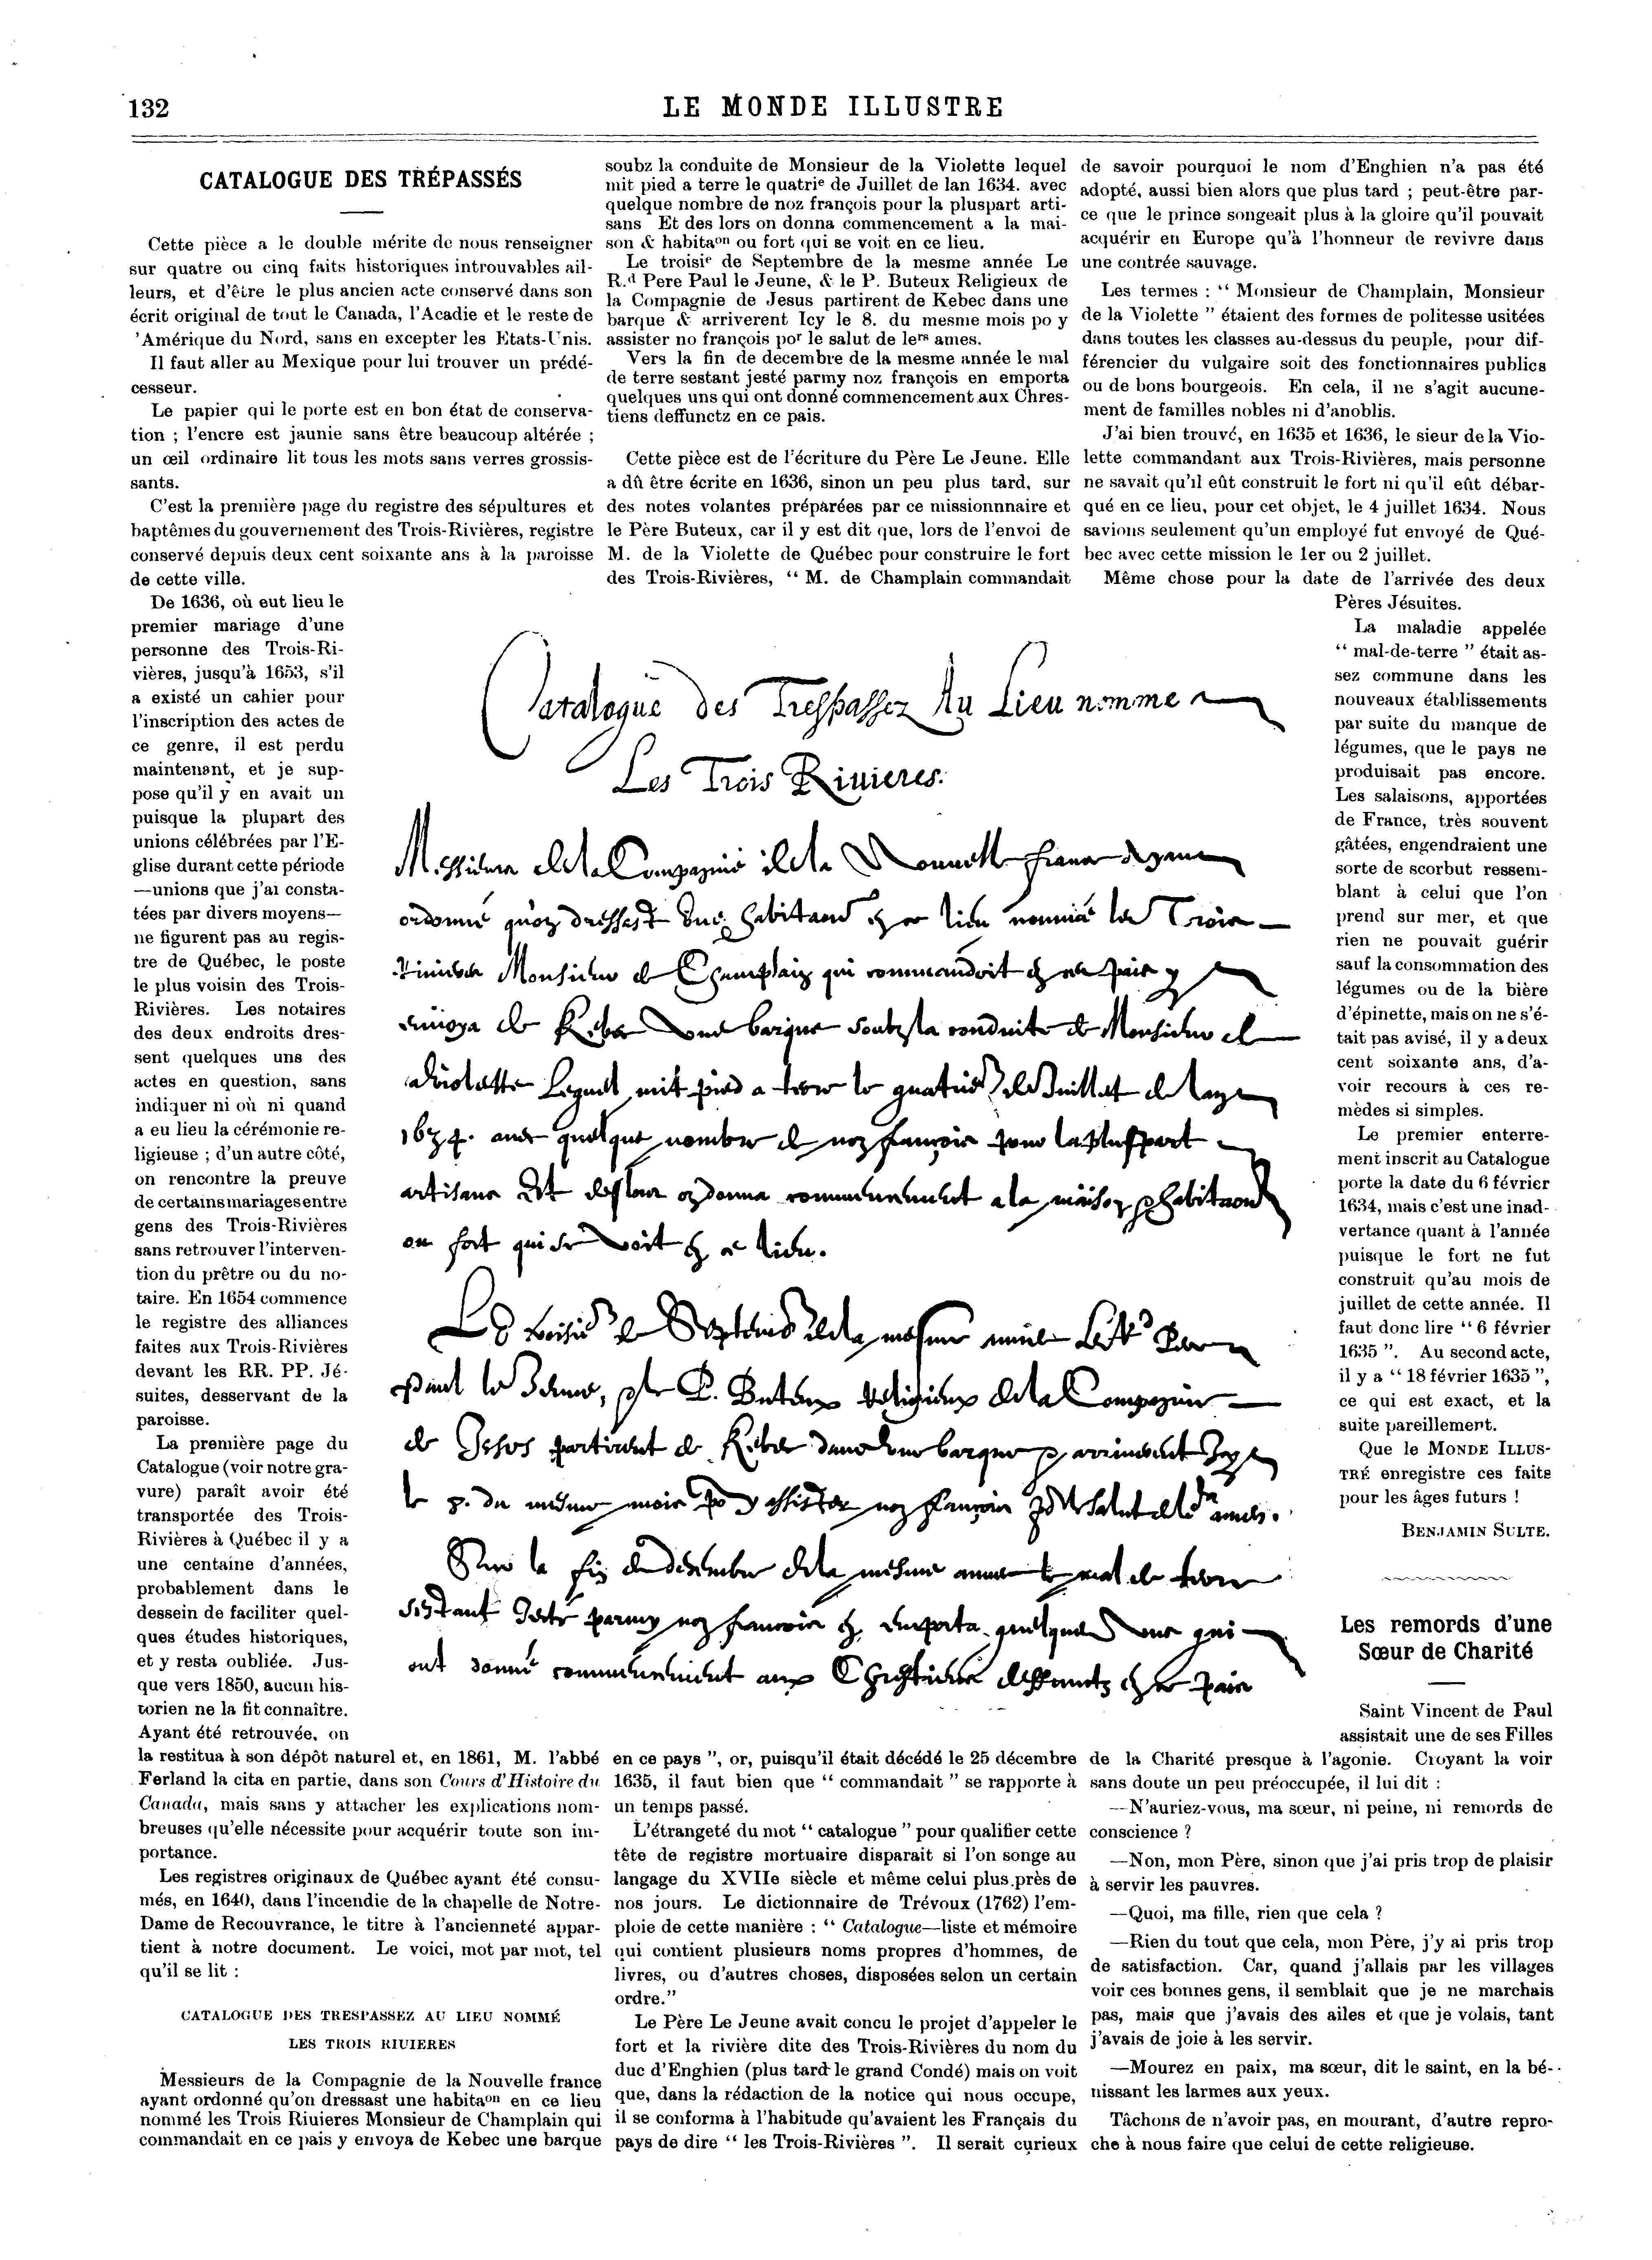 132
LE MONDE ILLUSTRE
CATALOGUE DES TRÉPASSÉS
Cette pièce a le double mérite de nous renseigner
sur quatre ou cinq faits historiques introuvables ail-
leurs, et d'être le plus ancien acte conservé dans son
écrit original de tout le Canada, l'Acadie et le reste de
'Amérique du Nord, sans en excepter les Etats-Unis.
Il faut aller au Mexique pour lui trouver un prédé-
cesseur.
Le papier qui le porte est en bon état de conserva-
tion ; l'encre est jaunie sans être beaucoup altérée ;
un œil ordinaire lit tous les mots sans verres grossis-
sants.
C'est la première page du registre des sépultures et
baptêmes du gouvernement des Trois-Rivières, registre
conservé depuis deux cent soixante ans à la paroisse
de cette ville.
De 1636, où eut lieu le
premier mariage d'une
personne des Trois-Ri-
vières, jusqu'à 1653, s'il
a existé un cahier pour
l'inscription des actes de
ce genre, il est perdu
maintenant, et je sup-
pose qu'il y en avait un
puisque la plupart des
unions célébrées par l'E-
glise durant cette période
—unions que j'ai consta-
tées par divers moyens—
ne figurent pas au regis-
tre de Québec, le poste
le plus voisin des Trois-
Rivières. Les notaires
des deux endroits dres-
sent quelques uns des
actes en question, sans
indiquer ni où ni quand
a eu lieu la cérémonie re-
ligieuse ; d'un autre côté,
on rencontre la preuve
de certains mariages entre
gens des Trois-Rivières
sans retrouver l'interven-
tion du prêtre ou du no-
taire. En 1654 commence
le registre des alliances
faites aux Trois-Rivières
devant les RR. PP. Jé-
suites, desservant de la
paroisse.
La première page du
Catalogue (voir notre gra-
vure) paraît avoir été
transportée des Trois-
Rivières à Québec il y a
une centaine d'années,
probablement dans le
dessein de faciliter quel-
ques études historiques,
et y resta oubliée. Jus-
que vers 1850, aucun his-
torien ne la fit connaître.
Ayant été retrouvée, on
la restitua à son dépôt naturel et, en 1861, M. l'abbé
Ferland la cita en partie, dans son Cours d'Histoire du
Canada, mais sans y attacher les explications nom-
breuses qu'elle nécessite pour acquérir toute son im-
portance.
Les registres originaux de Québec ayant été consu-
més, en 1640, dans l'incendie de la chapelle de Notre-
Dame de Recouvrance, le titre à l'ancienneté appar-
tient à notre document. Le voici, mot par mot, tel
qu'il se lit :
CATALOGUE DES TRESPASSEZ AU LIEU NOMMÉ
LES TROIS RIUIERES
Messieurs de la Compagnie de la Nouvelle france
ayant ordonné qu'on dressast une habitaon en ce lieu
nommé les Trois Riuieres Monsieur de Champlain qui
commandait en ce pais y envoya de Kebec une barque
soubz la conduite de Monsieur de la Violette lequel
mit pied a terre le quatrie de Juillet de lan 1634. avec
quelque nombre de noz françois pour la pluspart arti-
sans Et des lors on donna commencement a la mai-
son & habitaon ou fort qui se voit en ce lieu.
Le troisie de Septembre de la mesme année Le
R.d Pere Paul le Jeune, & le P. Buteux Religieux de
la Compagnie de Jesus partirent de Kebec dans une
barque & arriverent Icy le 8. du mesme mois po y
assister no françois por le salut de lers ames.
Vers la fin de decembre de la mesme année le mal
de terre sestant jesté parmy noz françois en emporta
quelques uns qui ont donné commencement aux Chres-
tiens deffunctz en ce pais.
Cette pièce est de l'écriture du Père Le Jeune. Elle
a dû être écrite en 1636, sinon un peu plus tard, sur
des notes volantes préparées par ce missionnnaire et
le Père Buteux, car il y est dit que, lors de l'envoi de
M. de la Violette de Québec pour construire le fort
des Trois-Rivières, “ M. de Champlain commandait
Catalogue des Trespassez Au Lieu nomme
Les Trois Riuieres.
Messieurs de la Compagnie de la Nouuelle france ayans
ordonné qu'on dressast une habitaon en ce lieu nommé les Trois
Riuieres Monsieur de Champlain qui commandoit en ce pais y
enuoya de Kebec une barque soubz la conduite de Monsieur de
la Violette lequel mit pied a terre le quatrie de Juillet de lan
1634. auec quelque nombre de noz françois pour la pluspart
artisans Et des lors on donna commencement a la maison & habitaon
ou fort qui se voit en ce lieu.
Le troisie de Septembre de la mesme année Le R.d Pere
Paul le Jeune, & le P. Buteux Religieux de la Compagnie
de Jesus partirent de Kebec dans une barque & arriuerent Icy
le 8. du mesme mois po y assister noz françois por le salut de lers ames.
Sur la fin de decembre de la mesme annee le mal de terre
sestant Jecté parmy noz francois en emporta quelques uns qui
ont donné commencement aux Chrestiens deffunctz en ce pais
en ce pays ”, or, puisqu'il était décédé le 25 décembre
1635, il faut bien que “ commandait ” se rapporte à
un temps passé.
L'étrangeté du mot “ catalogue ” pour qualifier cette
tête de registre mortuaire disparait si l'on songe au
langage du XVIIe siècle et même celui plus près de
nos jours. Le dictionnaire de Trévoux (1762) l'em-
ploie de cette manière : “ Catalogue—liste et mémoire
qui contient plusieurs noms propres d'hommes, de
livres, ou d'autres choses, disposées selon un certain
ordre.”
Le Père Le Jeune avait concu le projet d'appeler le
fort et la rivière dite des Trois-Rivières du nom du
duc d'Enghien (plus tard le grand Condé) mais on voit
que, dans la rédaction de la notice qui nous occupe,
il se conforma à l'habitude qu'avaient les Français du
pays de dire “ les Trois-Rivières ”. Il serait curieux
de savoir pourquoi le nom d'Enghien n'a pas été
adopté, aussi bien alors que plus tard ; peut-être par-
ce que le prince songeait plus à la gloire qu'il pouvait
acquérir en Europe qu'à l'honneur de revivre dans
une contrée sauvage.
Les termes : “ Monsieur de Champlain, Monsieur
de la Violette ” étaient des formes de politesse usitées
dans toutes les classes au-dessus du peuple, pour dif-
férencier du vulgaire soit des fonctionnaires publics
ou de bons bourgeois. En cela, il ne s'agit aucune-
ment de familles nobles ni d'anoblis.
J'ai bien trouvé, en 1635 et 1636, le sieur de la Vio-
lette commandant aux Trois-Rivières, mais personne
ne savait qu'il eût construit le fort ni qu'il eût débar-
qué en ce lieu, pour cet objet, le 4 juillet 1634. Nous
savions seulement qu'un employé fut envoyé de Qué-
bec avec cette mission le 1er ou 2 juillet.
Même chose pour la date de l'arrivée des deux
Pères Jésuites.
La maladie appelée
“ mal-de-terre ” était as-
sez commune dans les
nouveaux établissements
par suite du manque de
légumes, que le pays ne
produisait pas encore.
Les salaisons, apportées
de France, très souvent
gâtées, engendraient une
sorte de scorbut ressem-
blant à celui que l'on
prend sur mer, et que
rien ne pouvait guérir
sauf la consommation des
légumes ou de la bière
d'épinette, mais on ne s'é-
tait pas avisé, il y a deux
cent soixante ans, d'a-
voir recours à ces re-
mèdes si simples.
Le premier enterre-
ment inscrit au Catalogue
porte la date du 6 février
1634, mais c'est une inad-
vertance quant à l'année
puisque le fort ne fut
construit qu'au mois de
juillet de cette année. Il
faut donc lire “ 6 février
1635 ”. Au second acte,
il y a “ 18 février 1635 ”,
ce qui est exact, et la
suite pareillement.
Que le MONDE ILLUS-
TRÉ enregistre ces faits
pour les âges futurs !
BENJAMIN SULTE.
Les remords d'une
Sœur de Charité
Saint Vincent de Paul
assistait une de ses Filles
de la Charité presque à l'agonie. Croyant la voir
sans doute un peu préoccupée, il lui dit :
—N'auriez-vous, ma sœur, ni peine, ni remords de
conscience ?
—Non, mon Père, sinon que j'ai pris trop de plaisir
à servir les pauvres.
—Quoi, ma fille, rien que cela ?
—Rien du tout que cela, mon Père, j'y ai pris trop
de satisfaction. Car, quand j'allais par les villages
voir ces bonnes gens, il semblait que je ne marchais
pas, mais que j'avais des ailes et que je volais, tant
j'avais de joie à les servir.
—Mourez en paix, ma sœur, dit le saint, en la bé-
nissant les larmes aux yeux.
Tâchons de n'avoir pas, en mourant, d'autre repro-
che à nous faire que celui de cette religieuse.